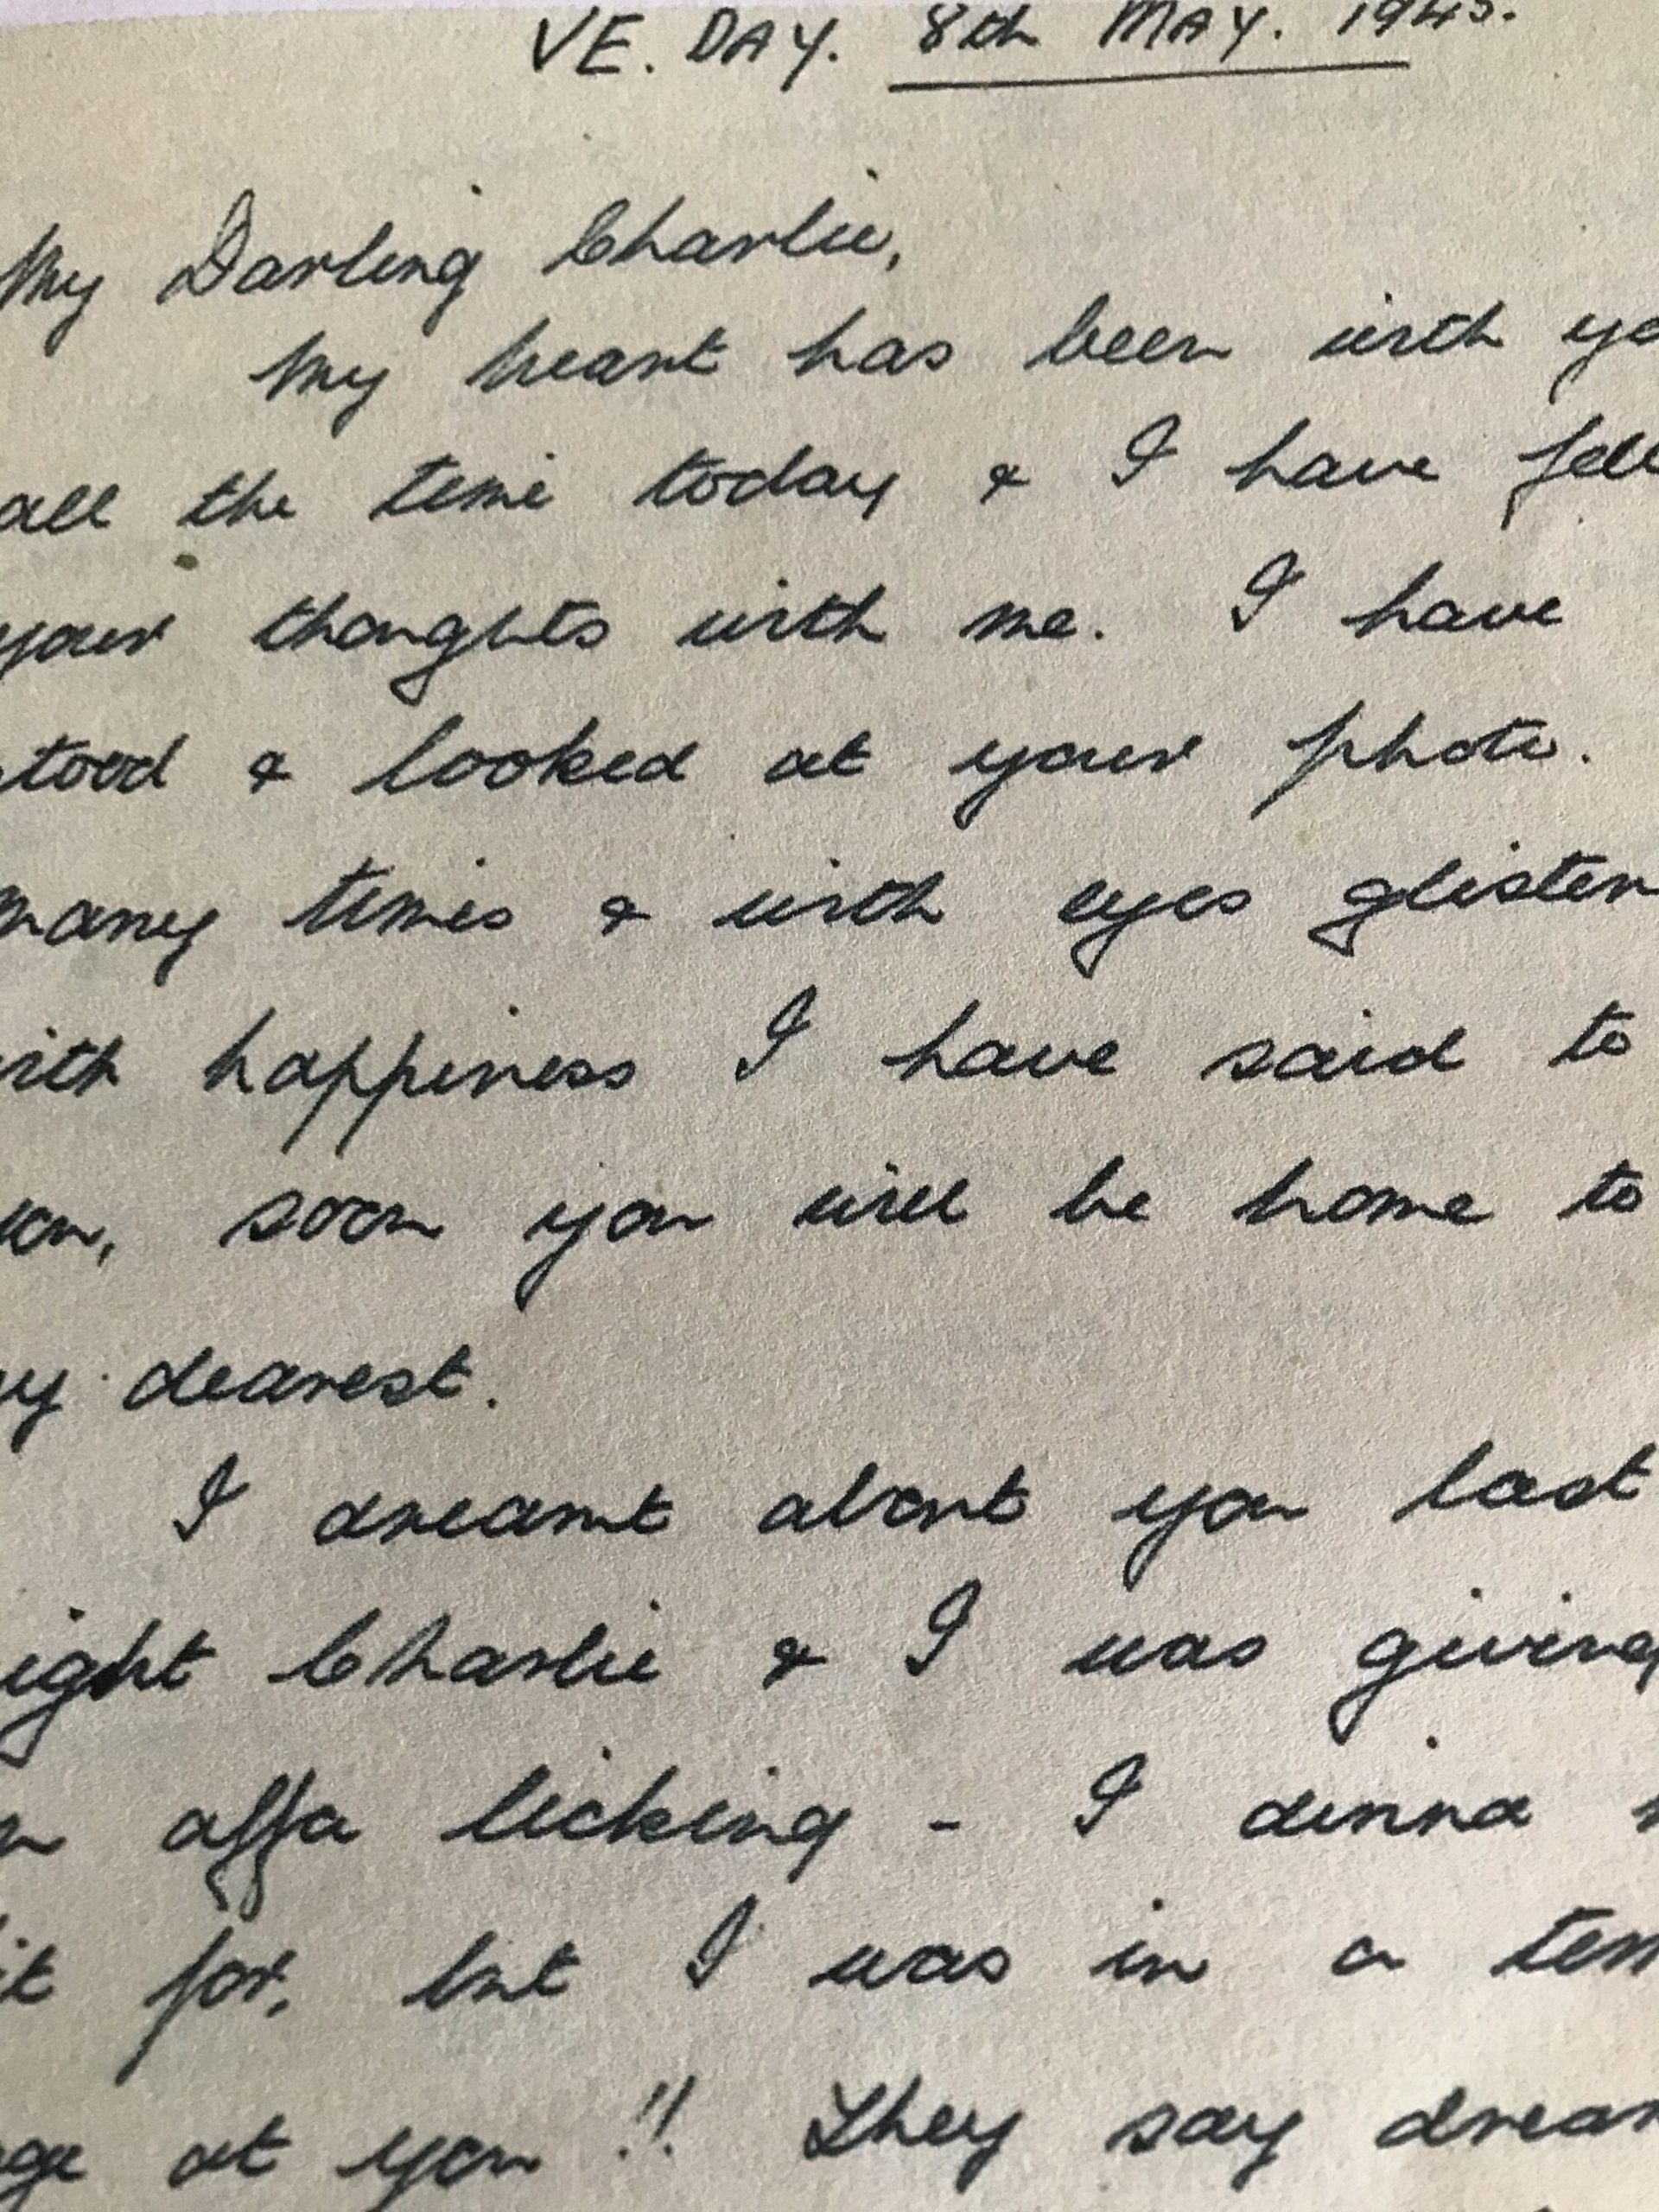 VE. DAY. 8th MAY. 1945.
My Darling Charlie,
My heart has been with yo
all the time today & I have fel
your thoughts with me. I have
tood & looked at your photo.
many times & with eyes glisten
ith happiness I have said to
soon you will be home to
y dearest.
I dreamt about you last
ight Charlie & I was giving
n affa licking - I dinna
it for, but I was in a
ge at you !! They say drea